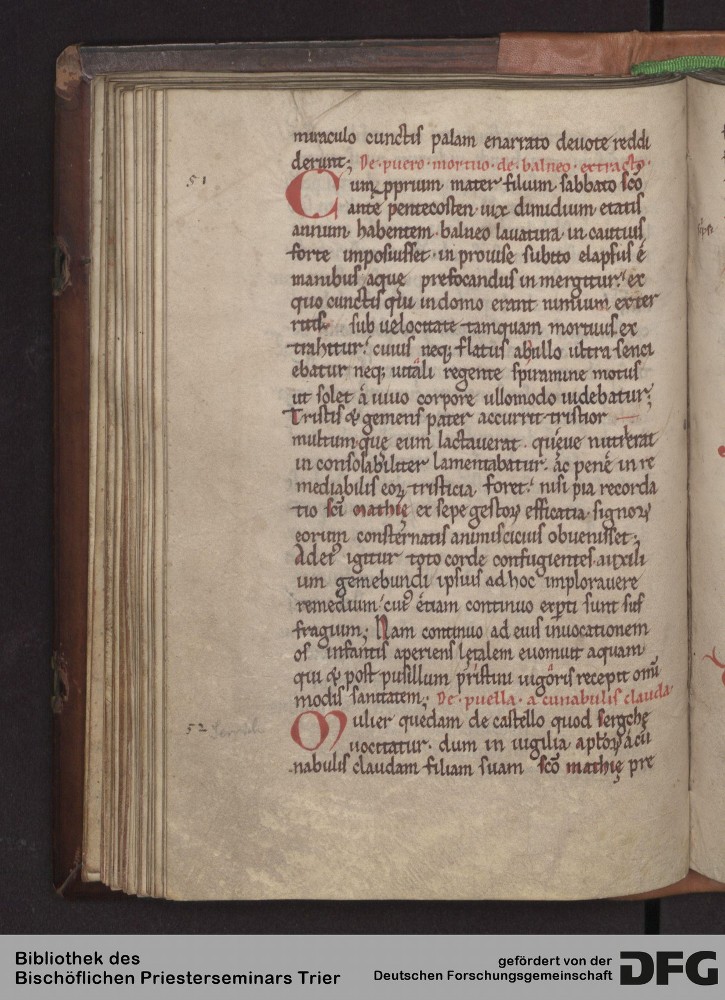 miraculo cunctis palam enarrato deuote reddi
derunt; De·puero·mortuo·de·balneo·extracto·
51
Cum pprium mater filium sabbato sco
ante pentecosten·uix dimidium etatis
annum·habentem·balneo lauatura·in cautius
forte imposuisset·in prouise subito elapsus é
manibus aque prefocandus in mergitur; ex
quo cunctis qui in domo erant nimium exter
ritis sub uelocitate tamquam mortuus ex
trahitur; cuius neq; flatus ab ullo ultra senci
ebatur neq; uitali regente spiramine motus
ut solet á uiuo corpore ullomodo uidebatur;
Tristis & gemens pater accurrit tristior
multumque eum lactauerat·queue nutrierat
in consolabiliter lamentabatur·ác pené in re
mediabilis eoꝝ tristicia foret; nisi pia recorda
tio sci mathię ex sepe gestoꝝ efficatia signoꝝ
eorum consternatis animis cicius obuenisset;
Ad ei igitur toto corde confugientes auxili
um gemebundi ipsius ad hoc implorauere
remedium; cui étiam continuo expti sunt suf
fragium; Nam continuo ad eius inuocationem
os infantis aperiens lętalem euomuit aquam
qui & post pusillum pristini uigoris recepit omi
modis sanitatem; De·puella·a cunabulis clauda·
52
Mulier quedam de castello quod sergehę
uocitatur·dum in uigilia aptoꝝ á cu
nabulis claudam filiam suam sco mathię pre
Bibliothek des
Bischöflichen Priesterseminars Trier
gefördert von der
Deutschen Forschungsgemeinschaft
DFG